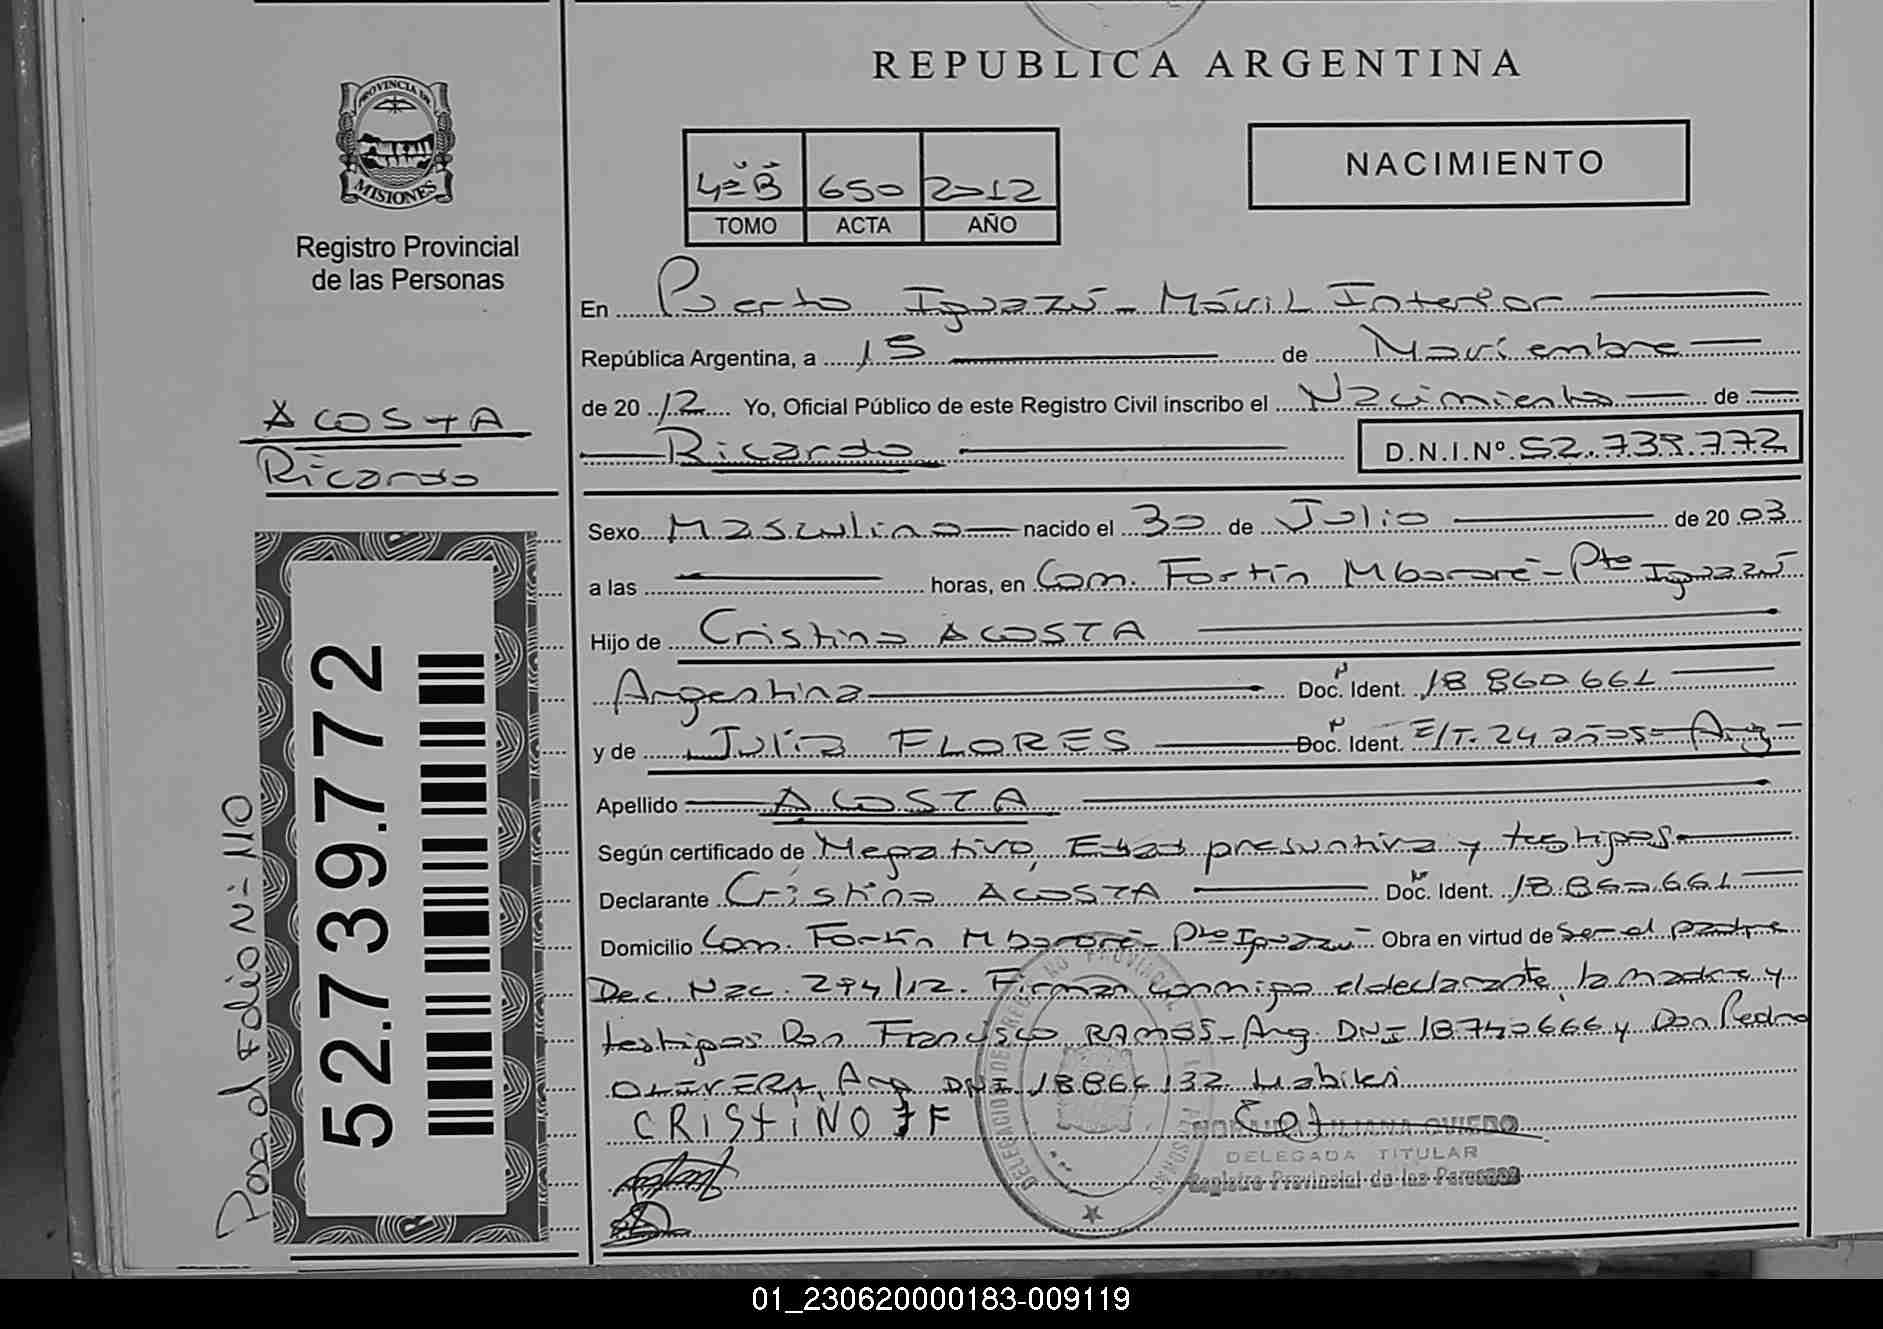 REPUBLICA ARGENTINA
PROVINCIA DE
MISIONES
Registro Provincial
de las Personas
4º B 650 2012
TOMO ACTA AÑO
NACIMIENTO
En Puerto Iguazú - Móvil Interior
República Argentina, a 15 de Noviembre
de 20 12 Yo, Oficial Público de este Registro Civil inscribo el Nacimiento de
Ricardo D.N.I.Nº 52.739.772
ACOSTA
Ricardo
Sexo Masculino nacido el 30 de Julio de 20 03
a las horas, en Com. Fortín Mbororé - Pto Iguazú
Hijo de Cristino ACOSTA
Argentina Doc. Ident. 18 860 661
y de Julia FLORES Doc. Ident. E/T. 24 Arg
Apellido ACOSTA
Según certificado de Negativo, Edad presuntiva y testigos
Declarante Cristino ACOSTA Doc. Ident. 18.860.661
Domicilio Com. Fortín Mbororé - Pto Iguazú Obra en virtud de ser el padre
Dec. Nac. 294/12. Firman conmigo el declarante, la madre y
testigos Don Francisco RAMOS - Arg. DNI 18740666 y Don Pedro
OLIVERA, Arg DNI 18 864 132
CRISTINO JF
LILIANA OVIEDO
DELEGADA TITULAR
Registro Provincial de las Personas
52.739.772
Pasa al Folio Nº 110
01_230620000183-009119